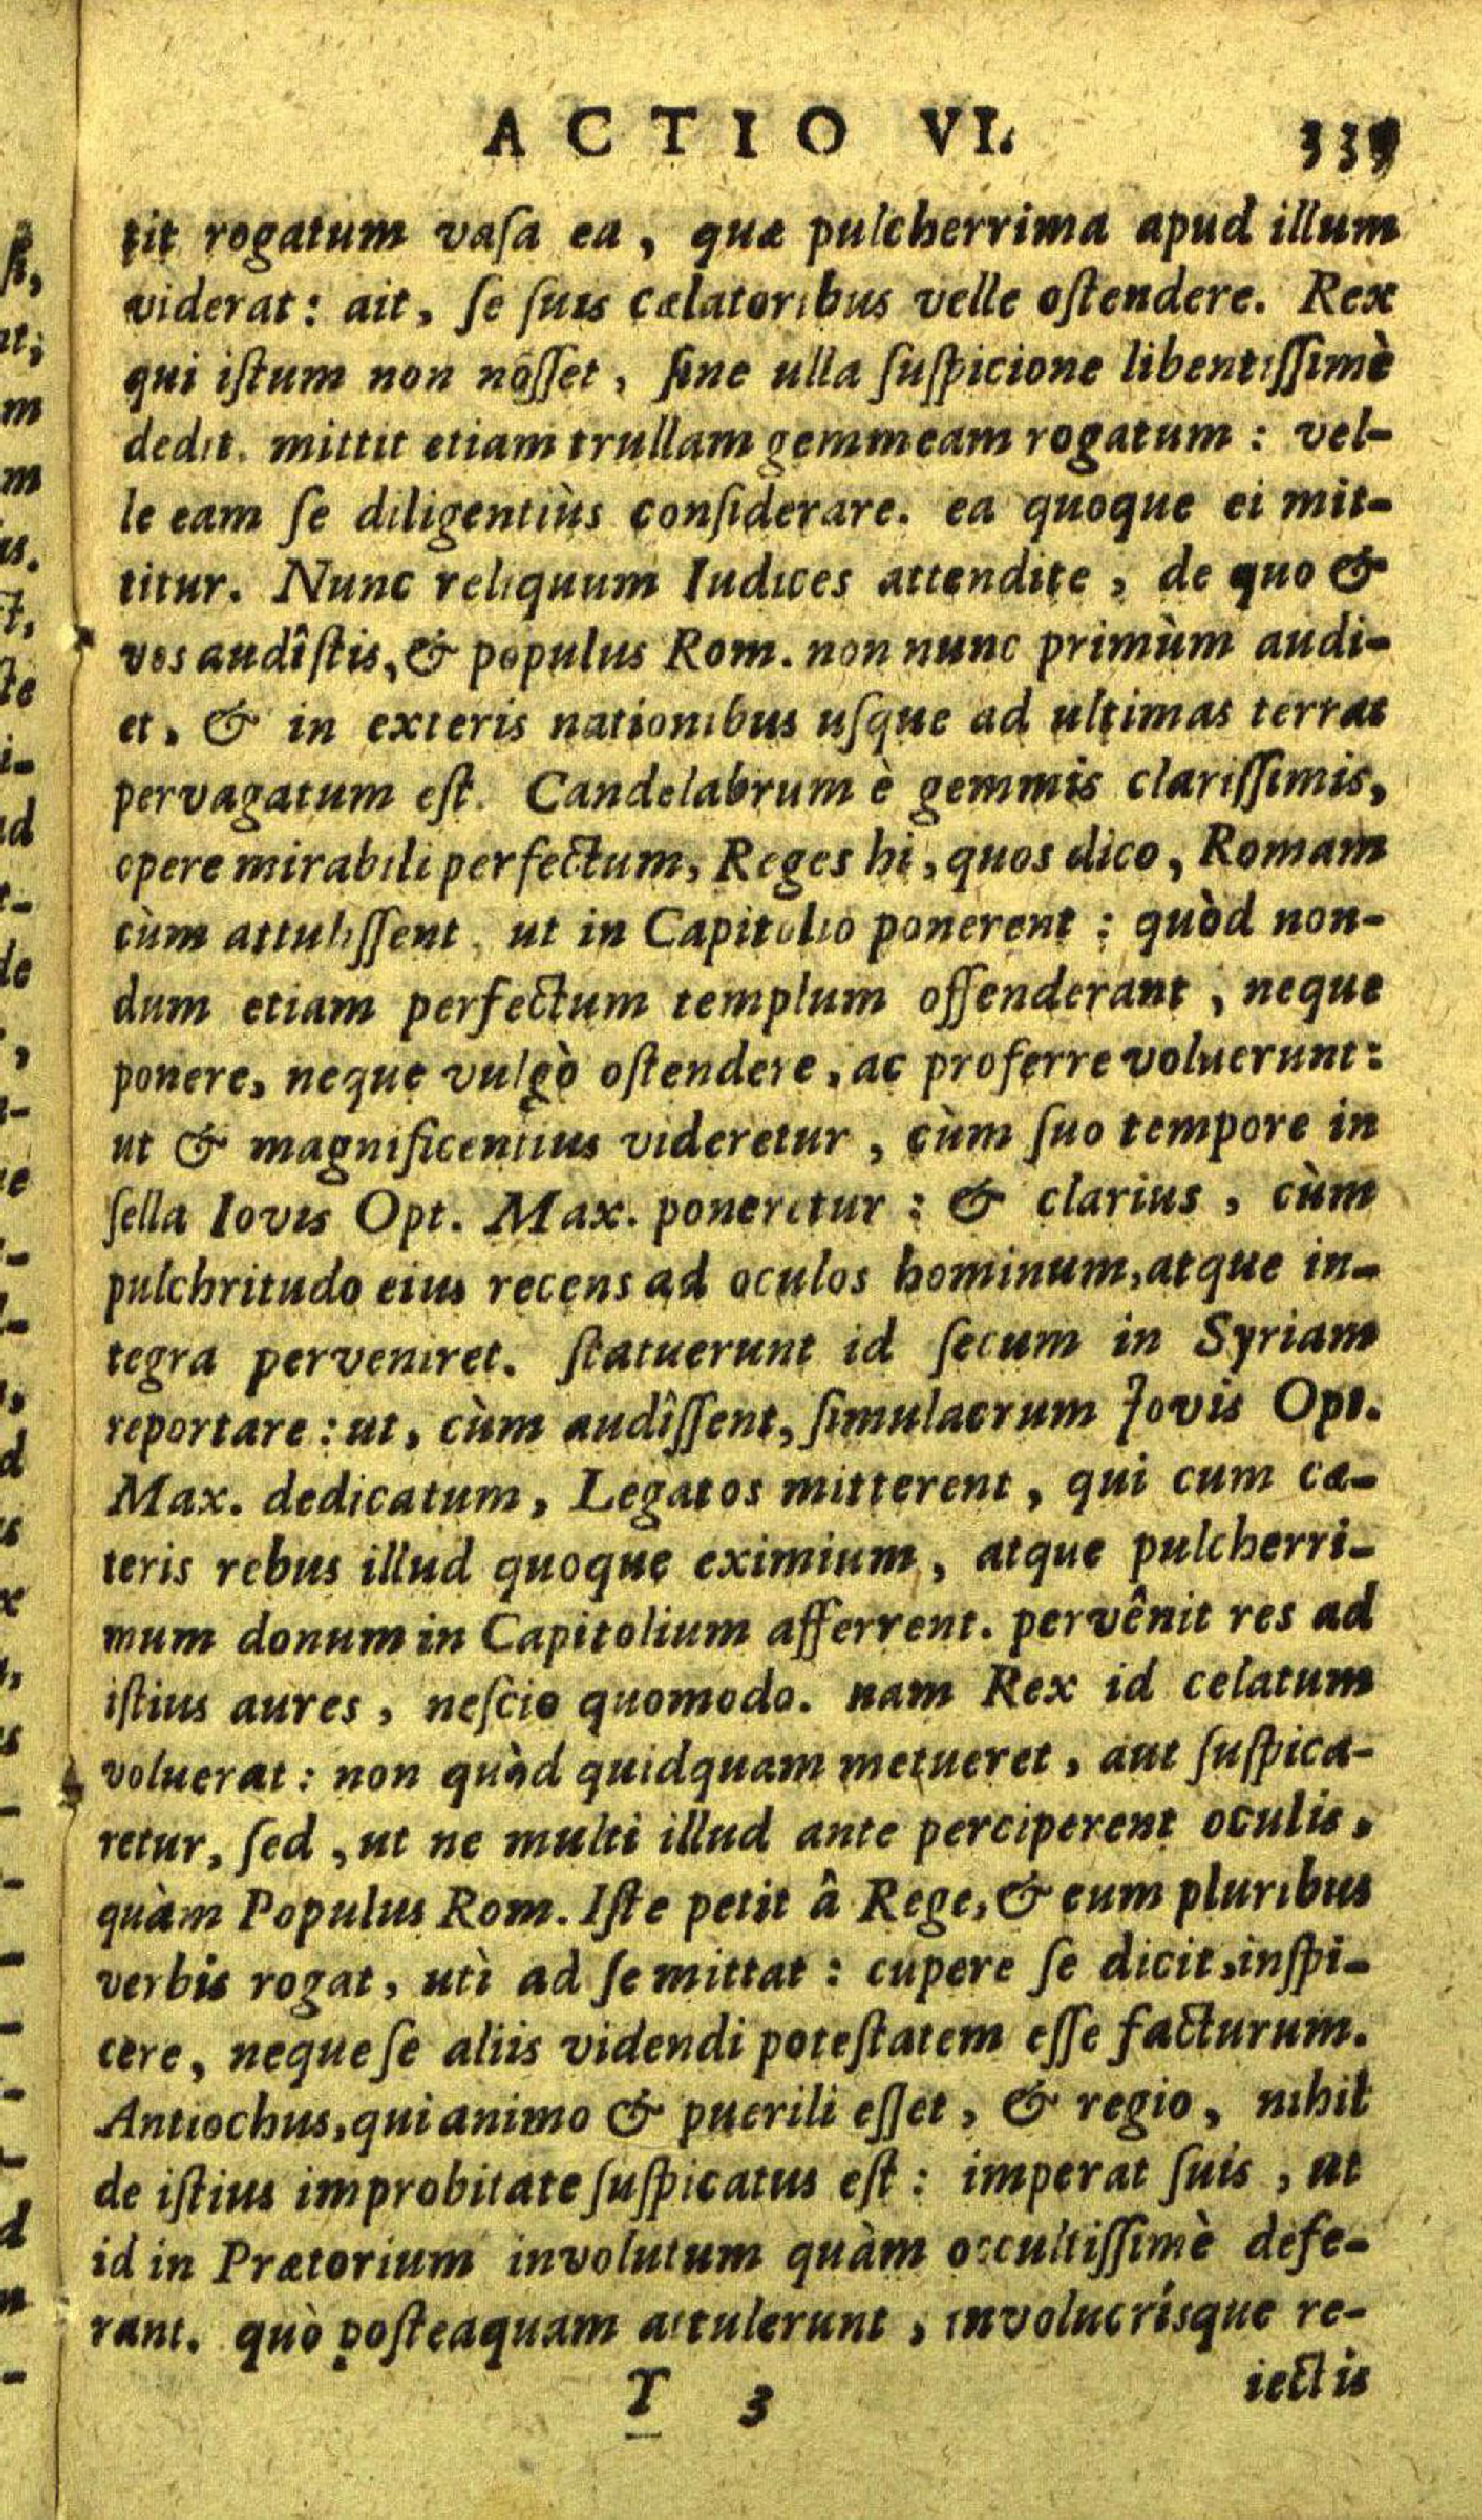 ACTIO VI. 339
tit rogatum vaſa ea, quæ pulcherrima apud illum
viderat: ait, ſe ſuis cælatoribus velle oſtendere. Rex
qui iſtum non nôſſet, ſine ulla ſuſpicione libentiſſimè
dedit. mittit etiam trullam gemmeam rogatum: vel-
le eam ſe diligentiùs conſiderare. ea quoque ei mit-
titur. Nunc reliquum Iudices attendite, de quo &
vos audîſtis, & populus Rom. non nunc primùm audi-
et, & in exteris nationibus uſque ad ultimas terras
pervagatum eſt. Candelabrum è gemmis clariſſimis,
opere mirabili perfectum, Reges hi, quos dico, Romam
cùm attuliſſent, ut in Capitolio ponerent: quòd non-
dum etiam perfectum templum offenderant, neque
ponere, neque vulgò oſtendere, ac proferre voluerunt:
ut & magnificentius videretur, cùm ſuo tempore in
ſella Iovis Opt. Max. poneretur: & clarius, cùm
pulchritudo eius recens ad oculos hominum, atque in-
tegra perveniret. ſtatuerunt id ſecum in Syriam
reportare: ut, cùm audîſſent, ſimulacrum Jovis Opt.
Max. dedicatum, Legatos mitterent, qui cum cæ-
teris rebus illud quoque eximium, atque pulcherri-
mum donum in Capitolium afferrent. pervênit res ad
iſtius aures, neſcio quomodo. nam Rex id celatum
voluerat: non quòd quidquam metueret, aut ſuſpica-
retur, ſed, ut ne multi illud ante perciperent oculis,
quàm Populus Rom. Iſte petit â Rege, & eum pluribus
verbis rogat, utì ad ſe mittat: cupere ſe dicit, inſpi-
cere, neque ſe aliis videndi poteſtatem eſſe facturum.
Antiochus, qui animo & puerili eſſet, & regio, nihil
de iſtius improbitate ſuſpicatus eſt: imperat ſuis, ut
id in Prætorium involutum quàm occultiſſimè defe-
rant. quò poſteaquam attulerunt, involucrísque re-
T 3 iectis